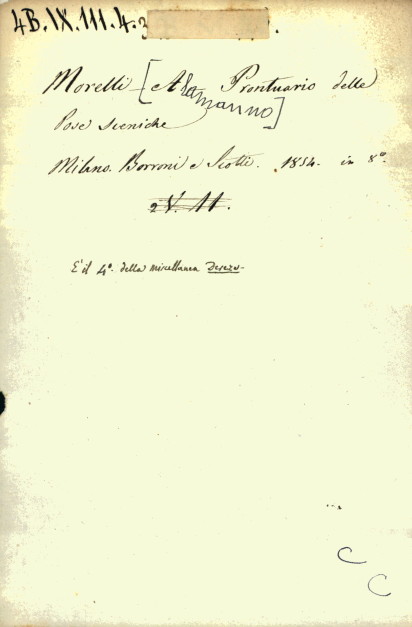 4B.IX.111.4.
Morelli [Alamanno] Prontuario delle
Pose sceniche
Milano. Borroni e Scotti. 1854. in 8º.
2 V. 11.
E' il 4º. della miscellanea
C
C